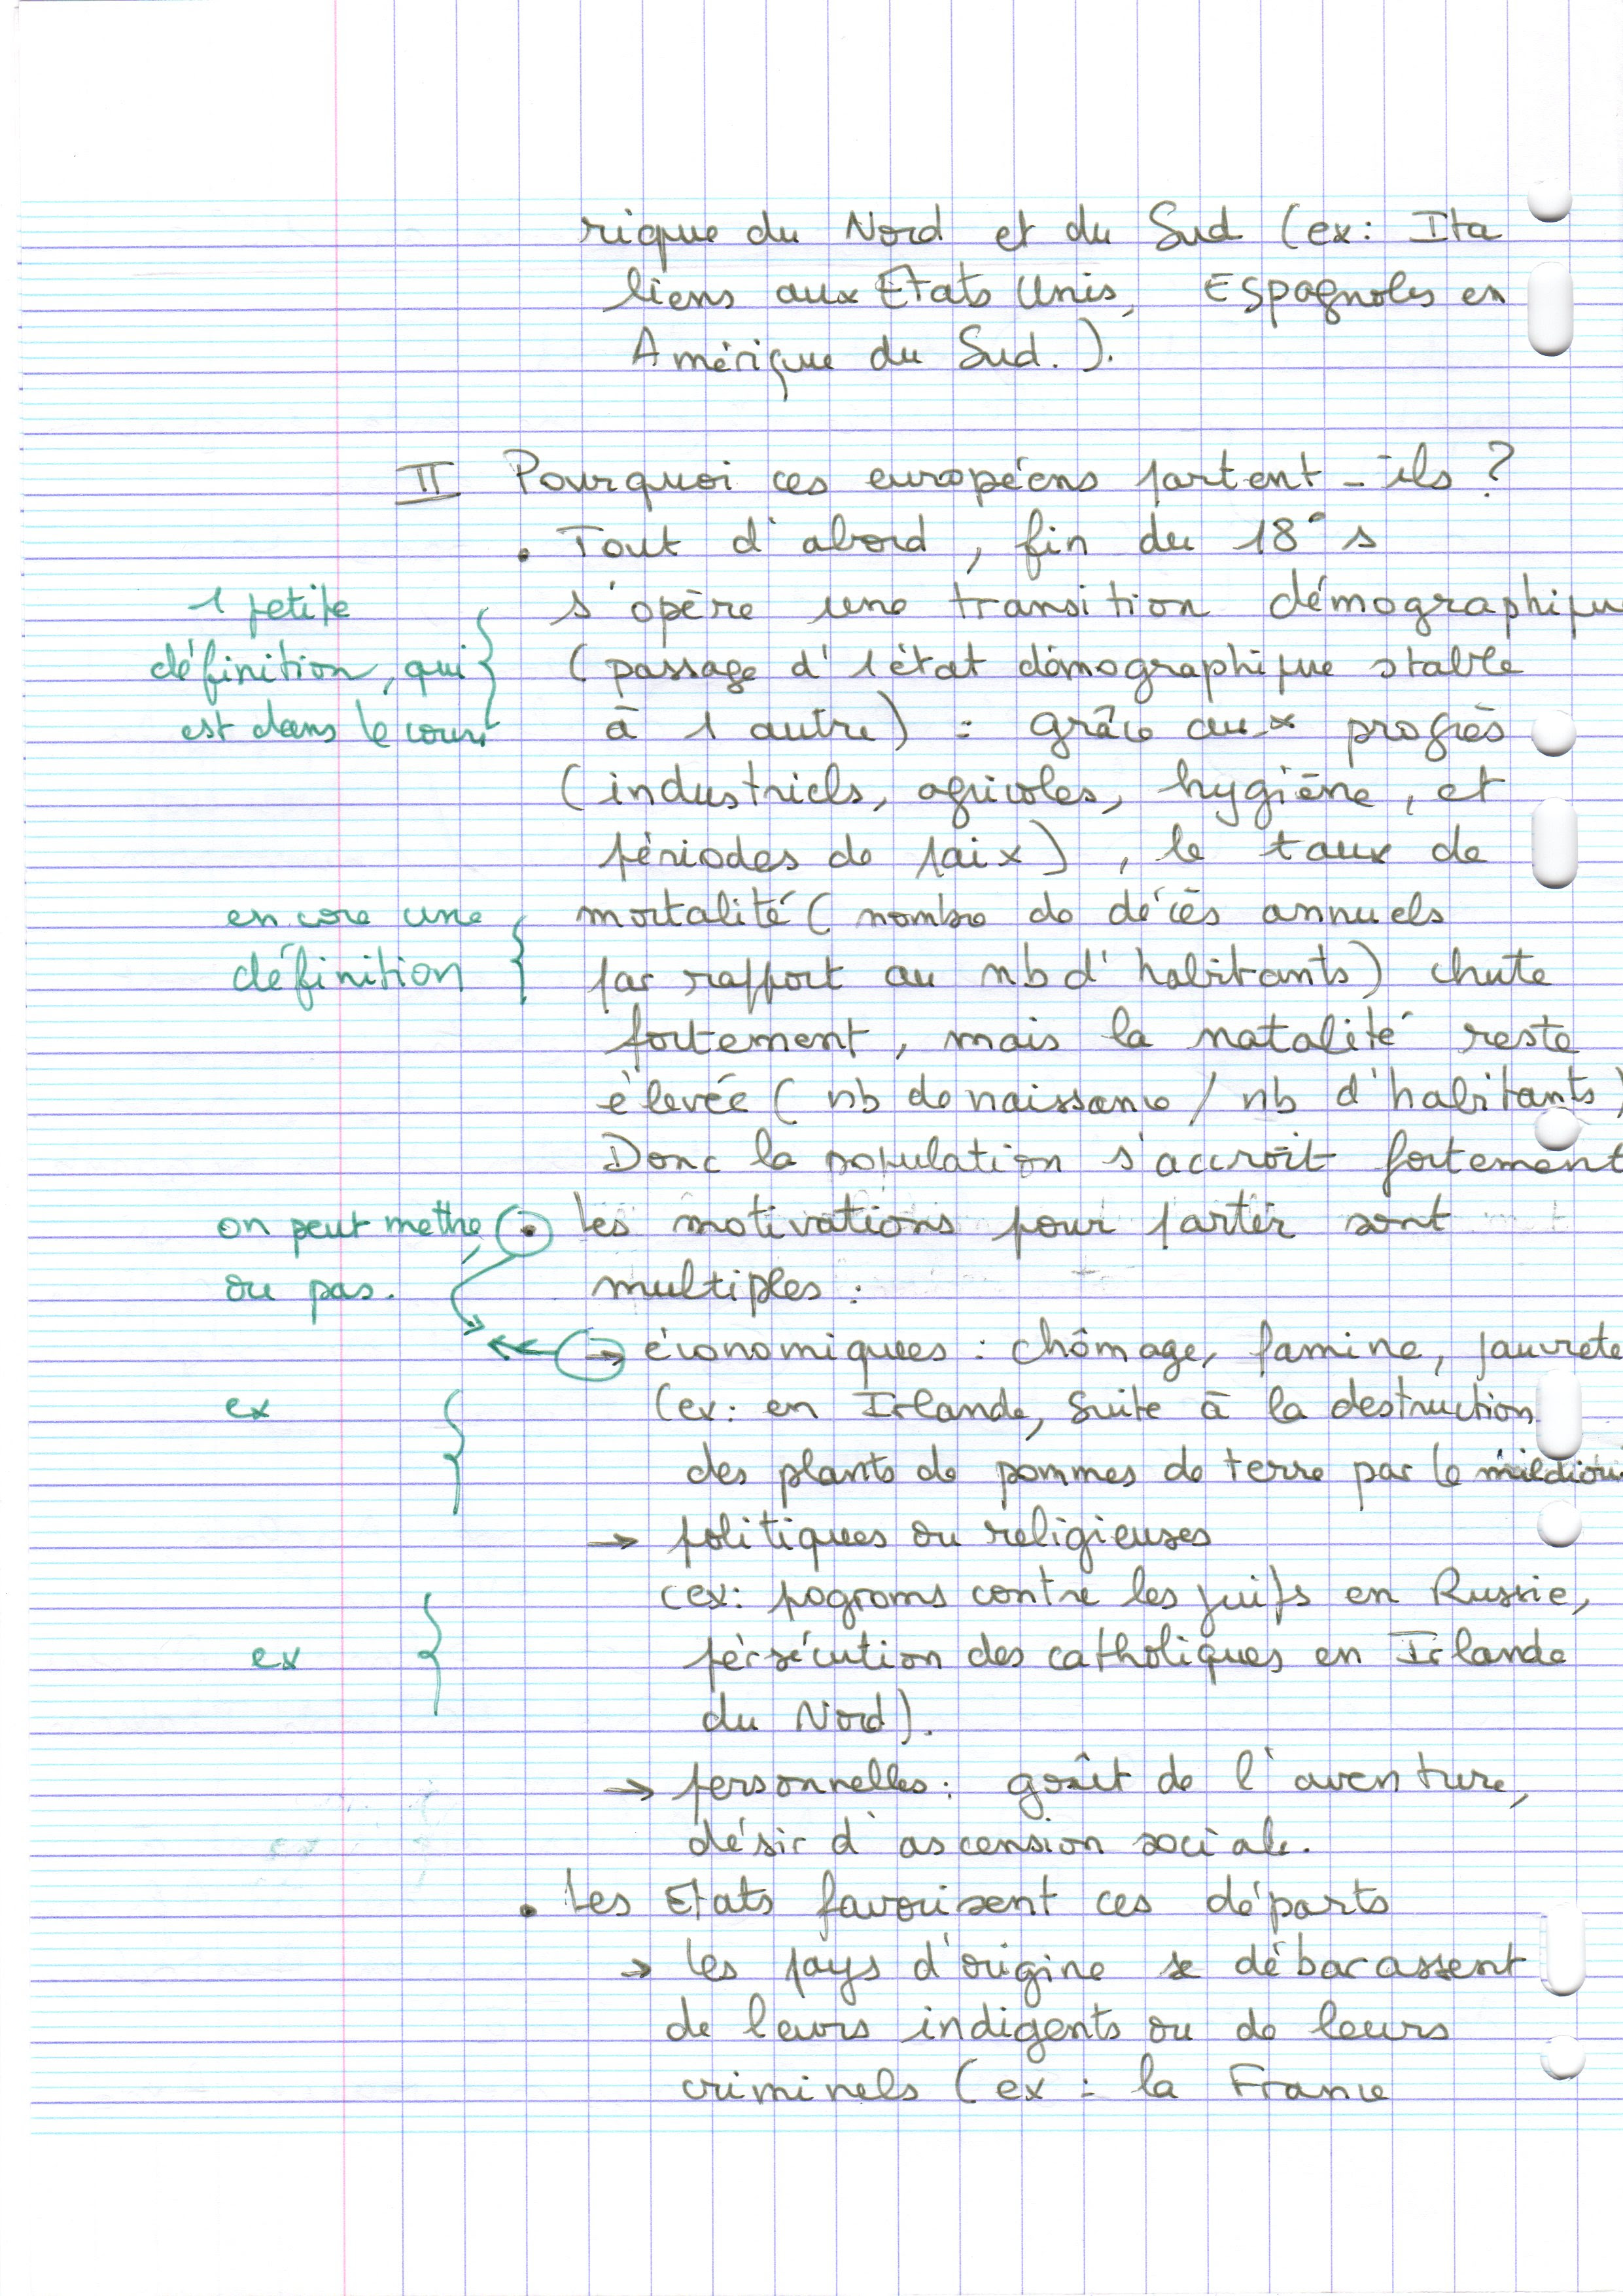 rique du Nord et du Sud (ex: Ita
liens aux Etats Unis, Espagnoles en
Amérique du Sud.).
II Pourquoi ces européens partent-ils ?
• Tout d'abord, fin du 18° s
1 petite
s'opère une transition démographiqu
définition, qui
(passage d'1 état démographique stable
est dans le cours
à 1 autre) : grâce aux progrès
(industriels, agricoles, hygiène, et
périodes de paix), le taux de
encore une
mortalité (nombre de décès annuels
définition
par rapport au nb d'habitants) chute
fortement, mais la natalité reste
élevée (nb de naissance / nb d'habitants)
Donc la population s'accroît fortement
on peut mettre
• Les motivations pour partir sont
ou pas.
multiples :
→ économiques : chômage, famine, pauvreté
ex
(ex: en Irlande, suite à la destruction
des plants de pommes de terre par le mildiou
→ politiques ou religieuses
(ex: pogroms contre les juifs en Russie,
ex
persécution des catholiques en Irlande
du Nord).
→ personnelles : goût de l'aventure,
désir d'ascension sociale.
• Les Etats favorisent ces départs
→ les pays d'origine se débarassent
de leurs indigents ou de leurs
criminels (ex : la France